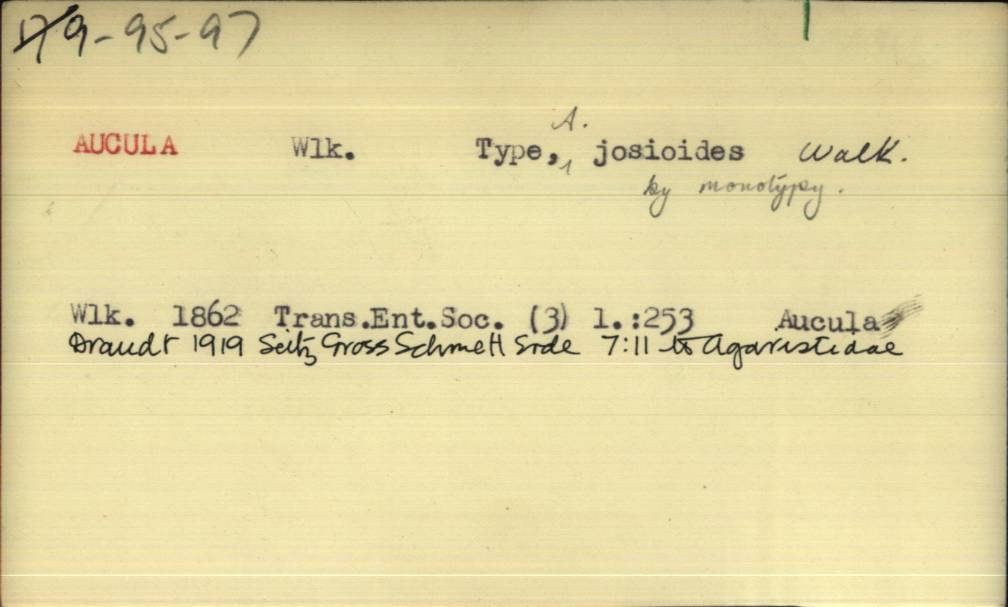 9-95-97
AUCULA Wlk. Type, A. josioides Walk.
by monotypy.
Wlk. 1862 Trans.Ent.Soc. (3) 1.:253 Aucula
Draudt 1919 Seitz Gross Schmett Erde 7:11 to Agaristidae